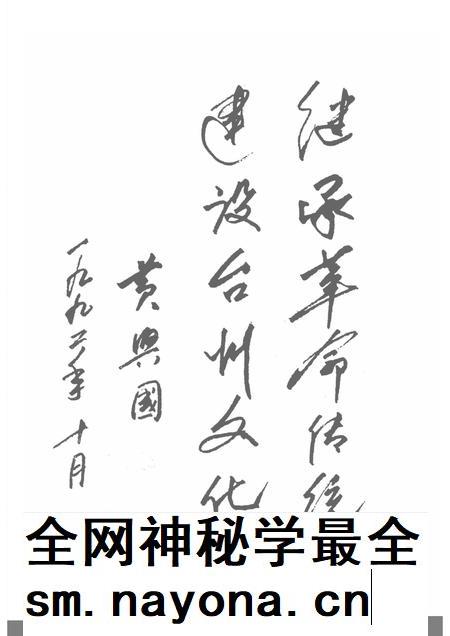 继承革命传统
建设台州文化
黄兴國
一九九二年十月
全网神秘学最全
sm.nayona.cn